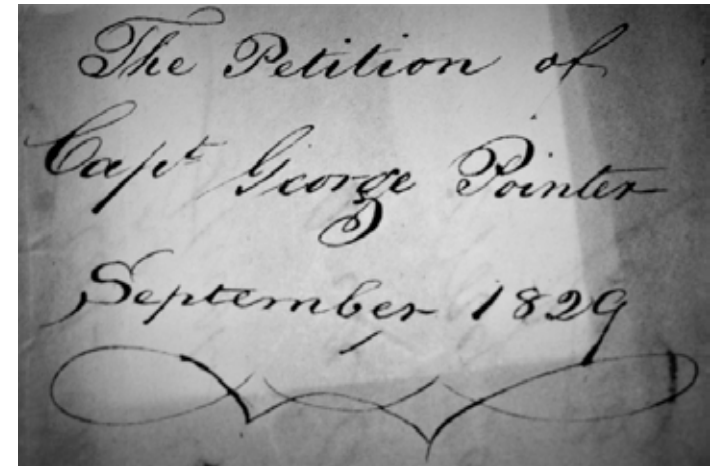 The Petition of
Capt George Pointer
September 1829